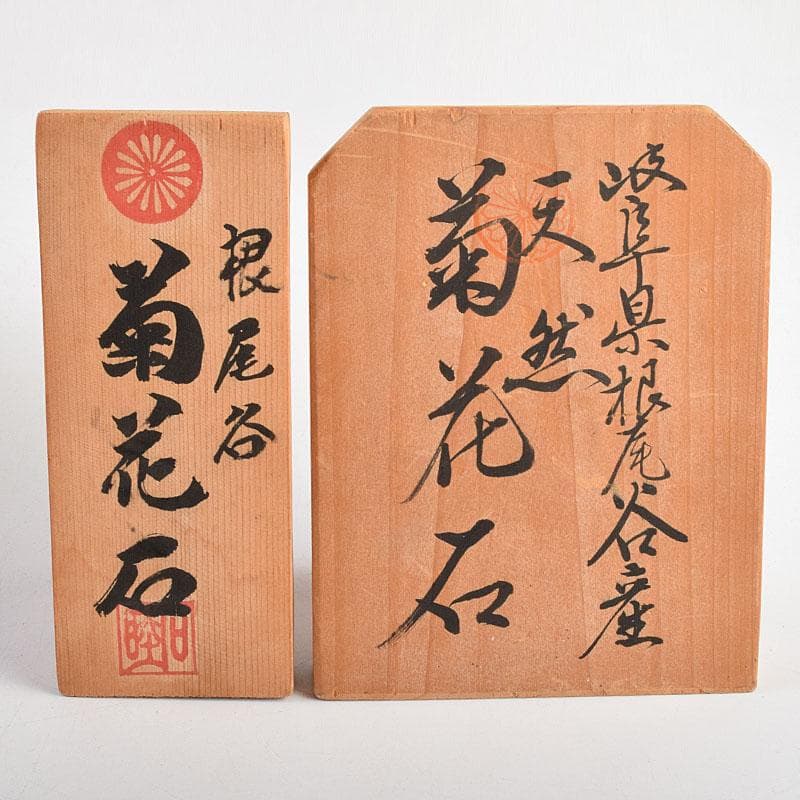 根尾谷
菊花石
岐阜県根尾谷産
天然
菊花石